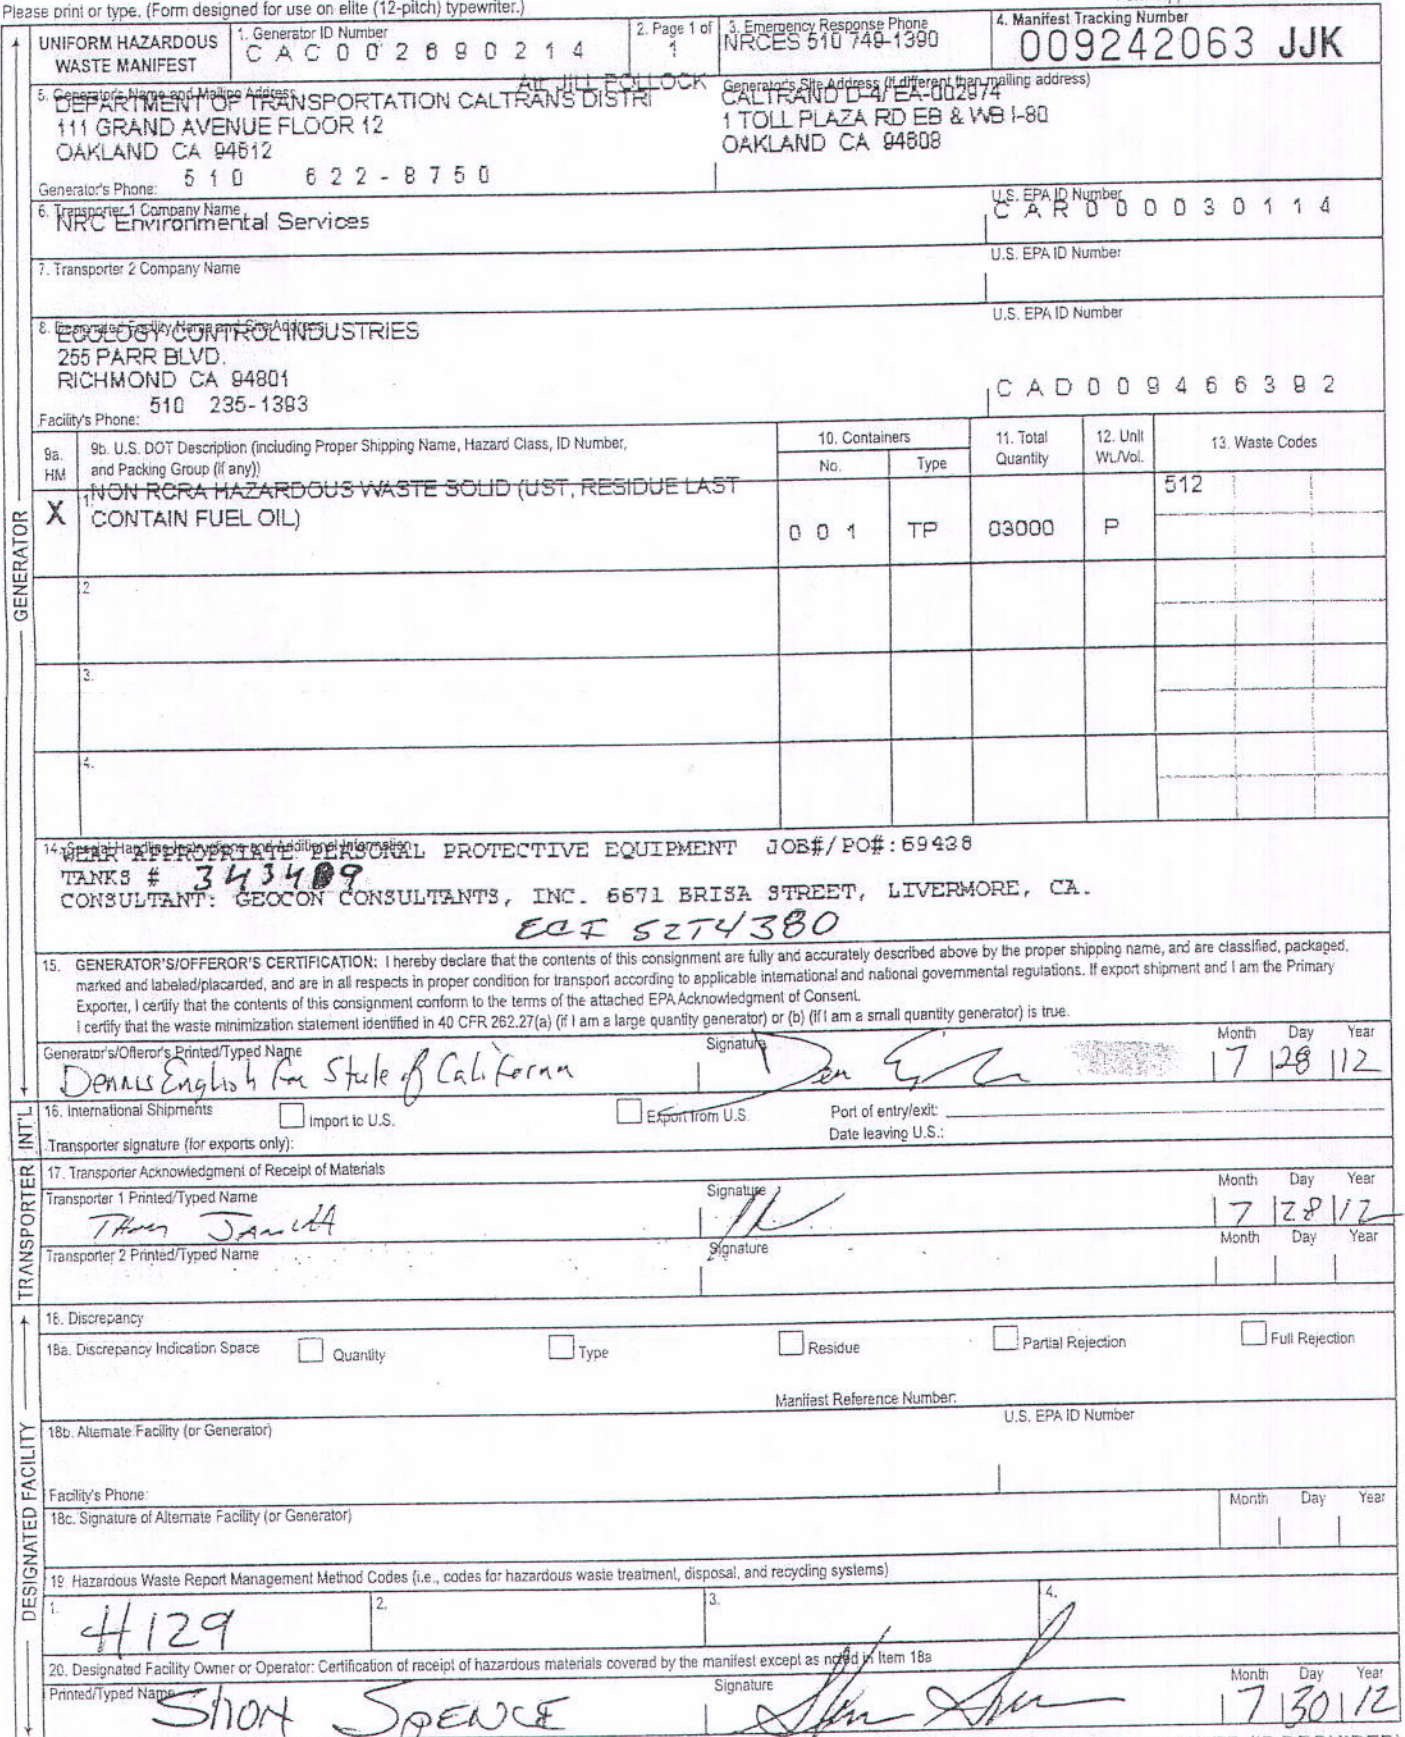 Please print or type. (Form designed for use on elite (12-pitch) typewriter.)
UNIFORM HAZARDOUS WASTE MANIFEST
1. Generator ID Number
CAC002690214
2. Page 1 of
1
3. Emergency Response Phone
NRCES 510 749-1390
4. Manifest Tracking Number
009242063 JJK
5. Generator's Name and Mailing Address
Att: JILL POLLOCK
DEPARTMENT OF TRANSPORTATION CALTRANS DISTRI
111 GRAND AVENUE FLOOR 12
OAKLAND CA 94612
Generator's Phone: 510 622-8750
Generator's Site Address (if different than mailing address)
CALTRAND D-4/ EA-002974
1 TOLL PLAZA RD EB & WB I-80
OAKLAND CA 94608
6. Transporter 1 Company Name
NRC Environmental Services
U.S. EPA ID Number
CAR000030114
7. Transporter 2 Company Name
U.S. EPA ID Number
8. Designated Facility Name and Site Address
ECOLOGY CONTROL INDUSTRIES
255 PARR BLVD.
RICHMOND CA 94801
510 235-1393
Facility's Phone:
U.S. EPA ID Number
CAD009466392
9a. HM
9b. U.S. DOT Description (including Proper Shipping Name, Hazard Class, ID Number, and Packing Group (if any))
10. Containers
No.
Type
11. Total Quantity
12. Unit Wt./Vol.
13. Waste Codes
X
1. NON RCRA HAZARDOUS WASTE SOLID (UST, RESIDUE LAST
CONTAIN FUEL OIL)
001 TP 03000 P 512
2.
3.
4.
14. Special Handling Instructions and Additional Information
WEAR APPROPRIATE PERSONAL PROTECTIVE EQUIPMENT JOB#/PO#:69438
TANKS #
CONSULTANT: GEOCON CONSULTANTS, INC. 6671 BRISA STREET, LIVERMORE, CA.
ECI 52T4380
15. GENERATOR'S/OFFEROR'S CERTIFICATION: I hereby declare that the contents of this consignment are fully and accurately described above by the proper shipping name, and are classified, packaged,
marked and labeled/placarded, and are in all respects in proper condition for transport according to applicable international and national governmental regulations. If export shipment and I am the Primary
Exporter, I certify that the contents of this consignment conform to the terms of the attached EPA Acknowledgment of Consent.
I certify that the waste minimization statement identified in 40 CFR 262.27(a) (if I am a large quantity generator) or (b) (if I am a small quantity generator) is true.
Generator's/Offeror's Printed/Typed Name
Signature
Month Day Year
Dennis English For State of California
7 28 12
16. International Shipments
Import to U.S.
Export from U.S.
Port of entry/exit:
Transporter signature (for exports only):
Date leaving U.S.:
17. Transporter Acknowledgment of Receipt of Materials
Transporter 1 Printed/Typed Name
Signature
Month Day Year
7 28 12
Transporter 2 Printed/Typed Name
Signature
Month Day Year
18. Discrepancy
18a. Discrepancy Indication Space
Quantity
Type
Residue
Partial Rejection
Full Rejection
Manifest Reference Number:
18b. Alternate Facility (or Generator)
U.S. EPA ID Number
Facility's Phone:
18c. Signature of Alternate Facility (or Generator)
Month Day Year
19. Hazardous Waste Report Management Method Codes (i.e., codes for hazardous waste treatment, disposal, and recycling systems)
1. H129
2.
3.
4.
20. Designated Facility Owner or Operator: Certification of receipt of hazardous materials covered by the manifest except as noted in Item 18a
Printed/Typed Name
Signature
Month Day Year
SPENCE
7 30 12
GENERATOR
INT'L
TRANSPORTER
DESIGNATED FACILITY